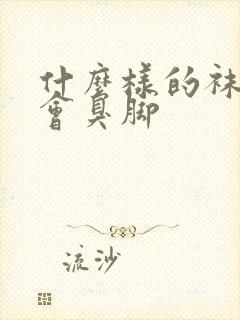 什麼樣的袜
會臭脚
流沙